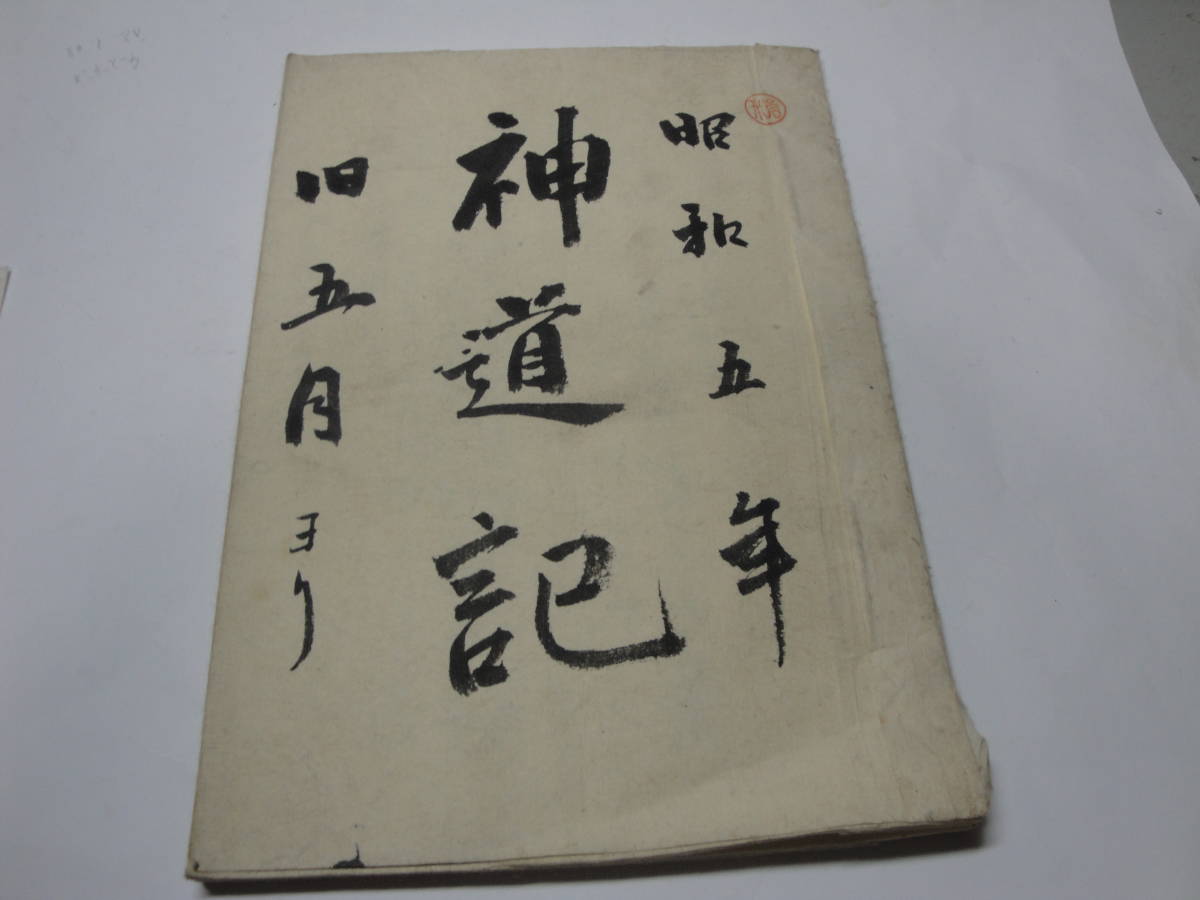 昭和五年
神道記
旧五月ヨリ